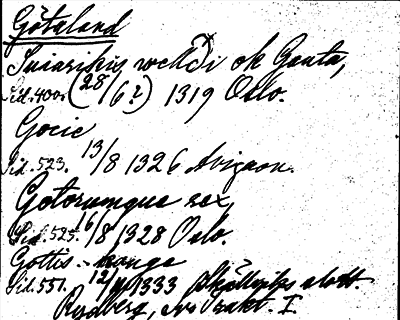 Götaland
Sviarikis welldi ok Gauta,
Sid. 400. (28/6?) 1319 Oslo.
Gocie
Sid. 523. 13/8 1326 Avignon.
Gotorumque rex,
Sid. 525. 16/8 1328 Oslo.
Gottis -
Sid. 551. 12/ 1333 slott.
Rydberg, Sv. trakt. I.